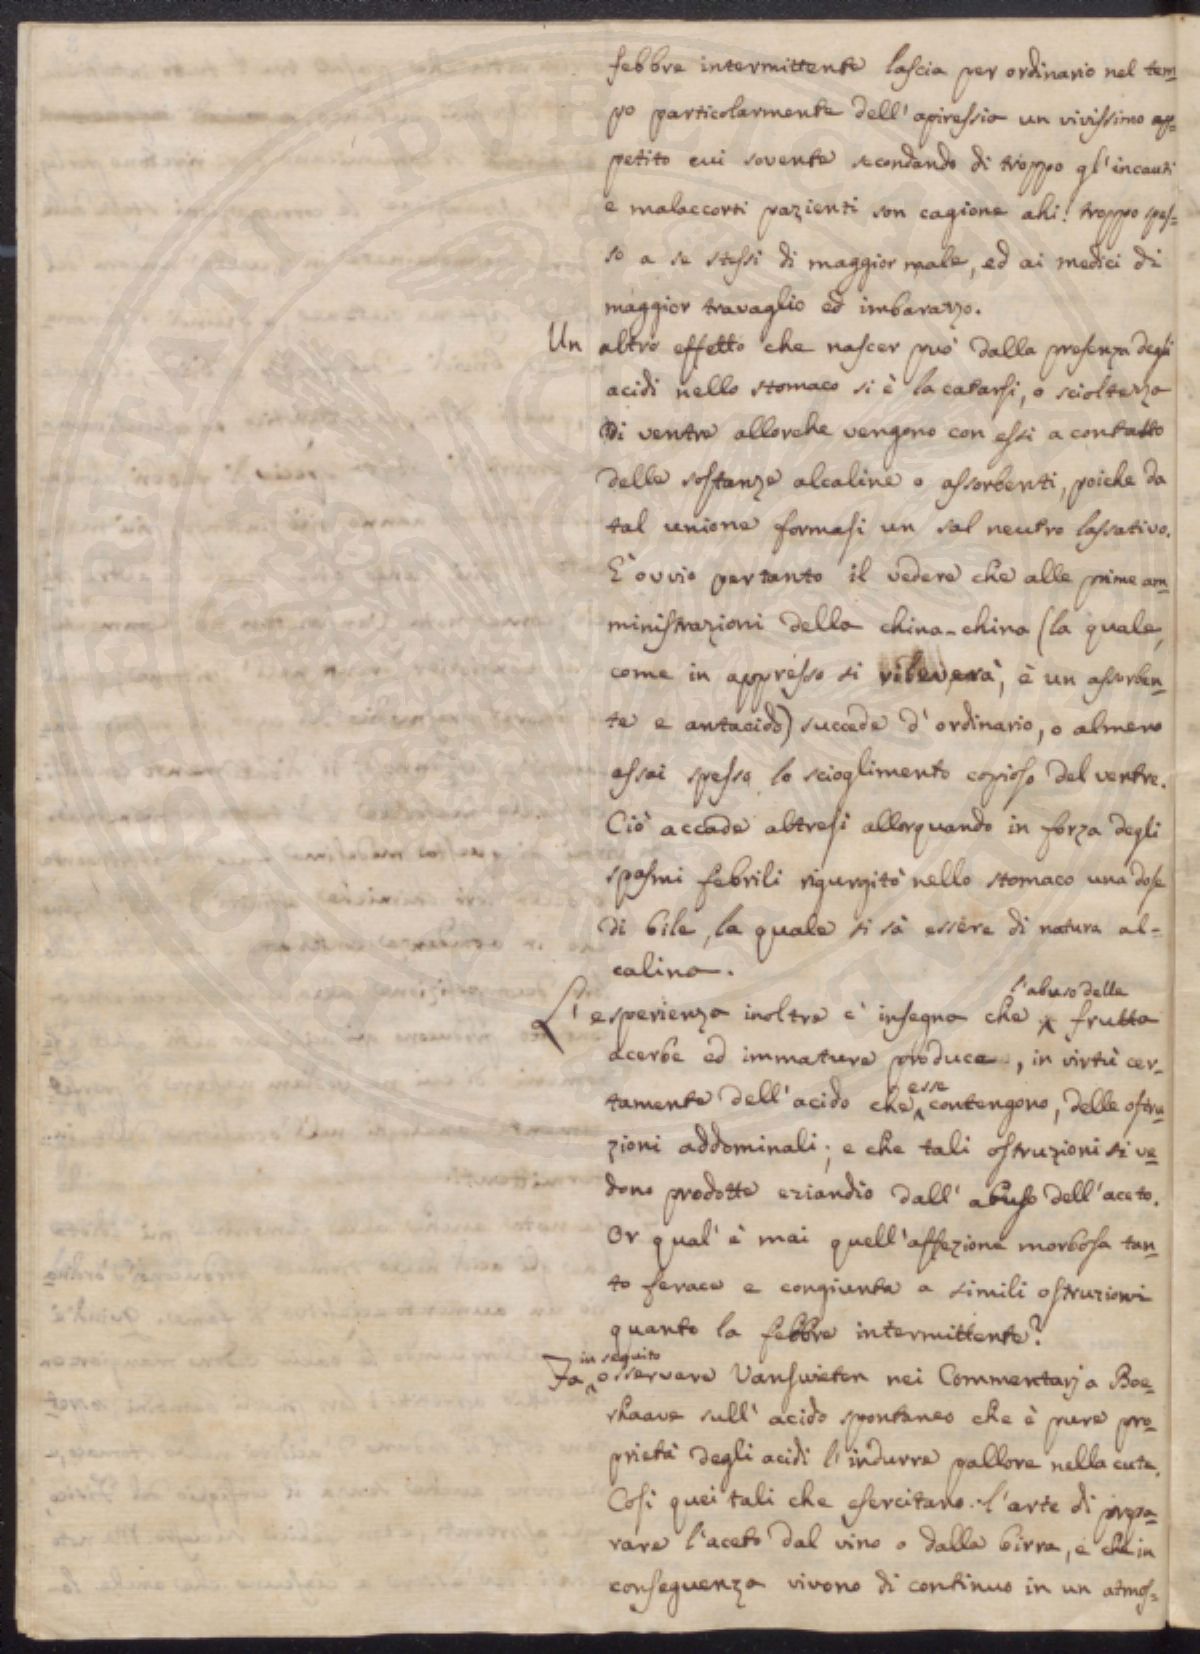 febbre intermittente lascia per ordinario nel tem=
po particolarmente dell' apiressia un vivissimo ap=
petito cui sovente secondando di troppo gl' incauti
e malaccorti pazienti son cagione ahi! troppo spes=
so a se stessi di maggior male, ed ai medici di
maggior travaglio ed imbarazzo.
Un altro effetto che nascer può dalla presenza degli
acidi nello stomaco si è la catarsi, o scioltezza
di ventre allorche vengono con essi a contatto
delle sostanze alcaline o assorbenti, poiche da
tal unione formasi un sal neutro lassativo.
E' ovvio pertanto il vedere che alle prime am=
ministrazioni della china-china (la quale,
come in appresso si rileverà, è un assorben=
te e antacido) succede d' ordinario, o almeno
assai spesso lo scioglimento copioso del ventre.
Ciò accade altresì allorquando in forza degli
spasmi febrili rigurgitò nello stomaco una dose
di bile, la quale si sà essere di natura al=
calina.
L' esperienza inoltre c' insegna che l'abuso delle frutta
acerbe ed immature produce, in virtù cer=
tamente dell' acido che esse contengono, delle ostru=
zioni addominali; e che tali ostruzioni si ve=
dono prodotte eziandio dall' abuso dell' aceto.
Or qual' è mai quell' affezione morbosa tan=
to ferace e congiunta a simili ostruzioni
quanto la febbre intermittente?
Fa in seguito osservare Vanswieten nei Commentarj a Boe=
rhaave sull' acido spontaneo che è pure pro=
prietà degli acidi l' indurre pallore nella cute.
Così quei tali che esercitano l' arte di prepa=
rare l' aceto dal vino o dalla birra, e che in
conseguenza vivono di continuo in un atmos=